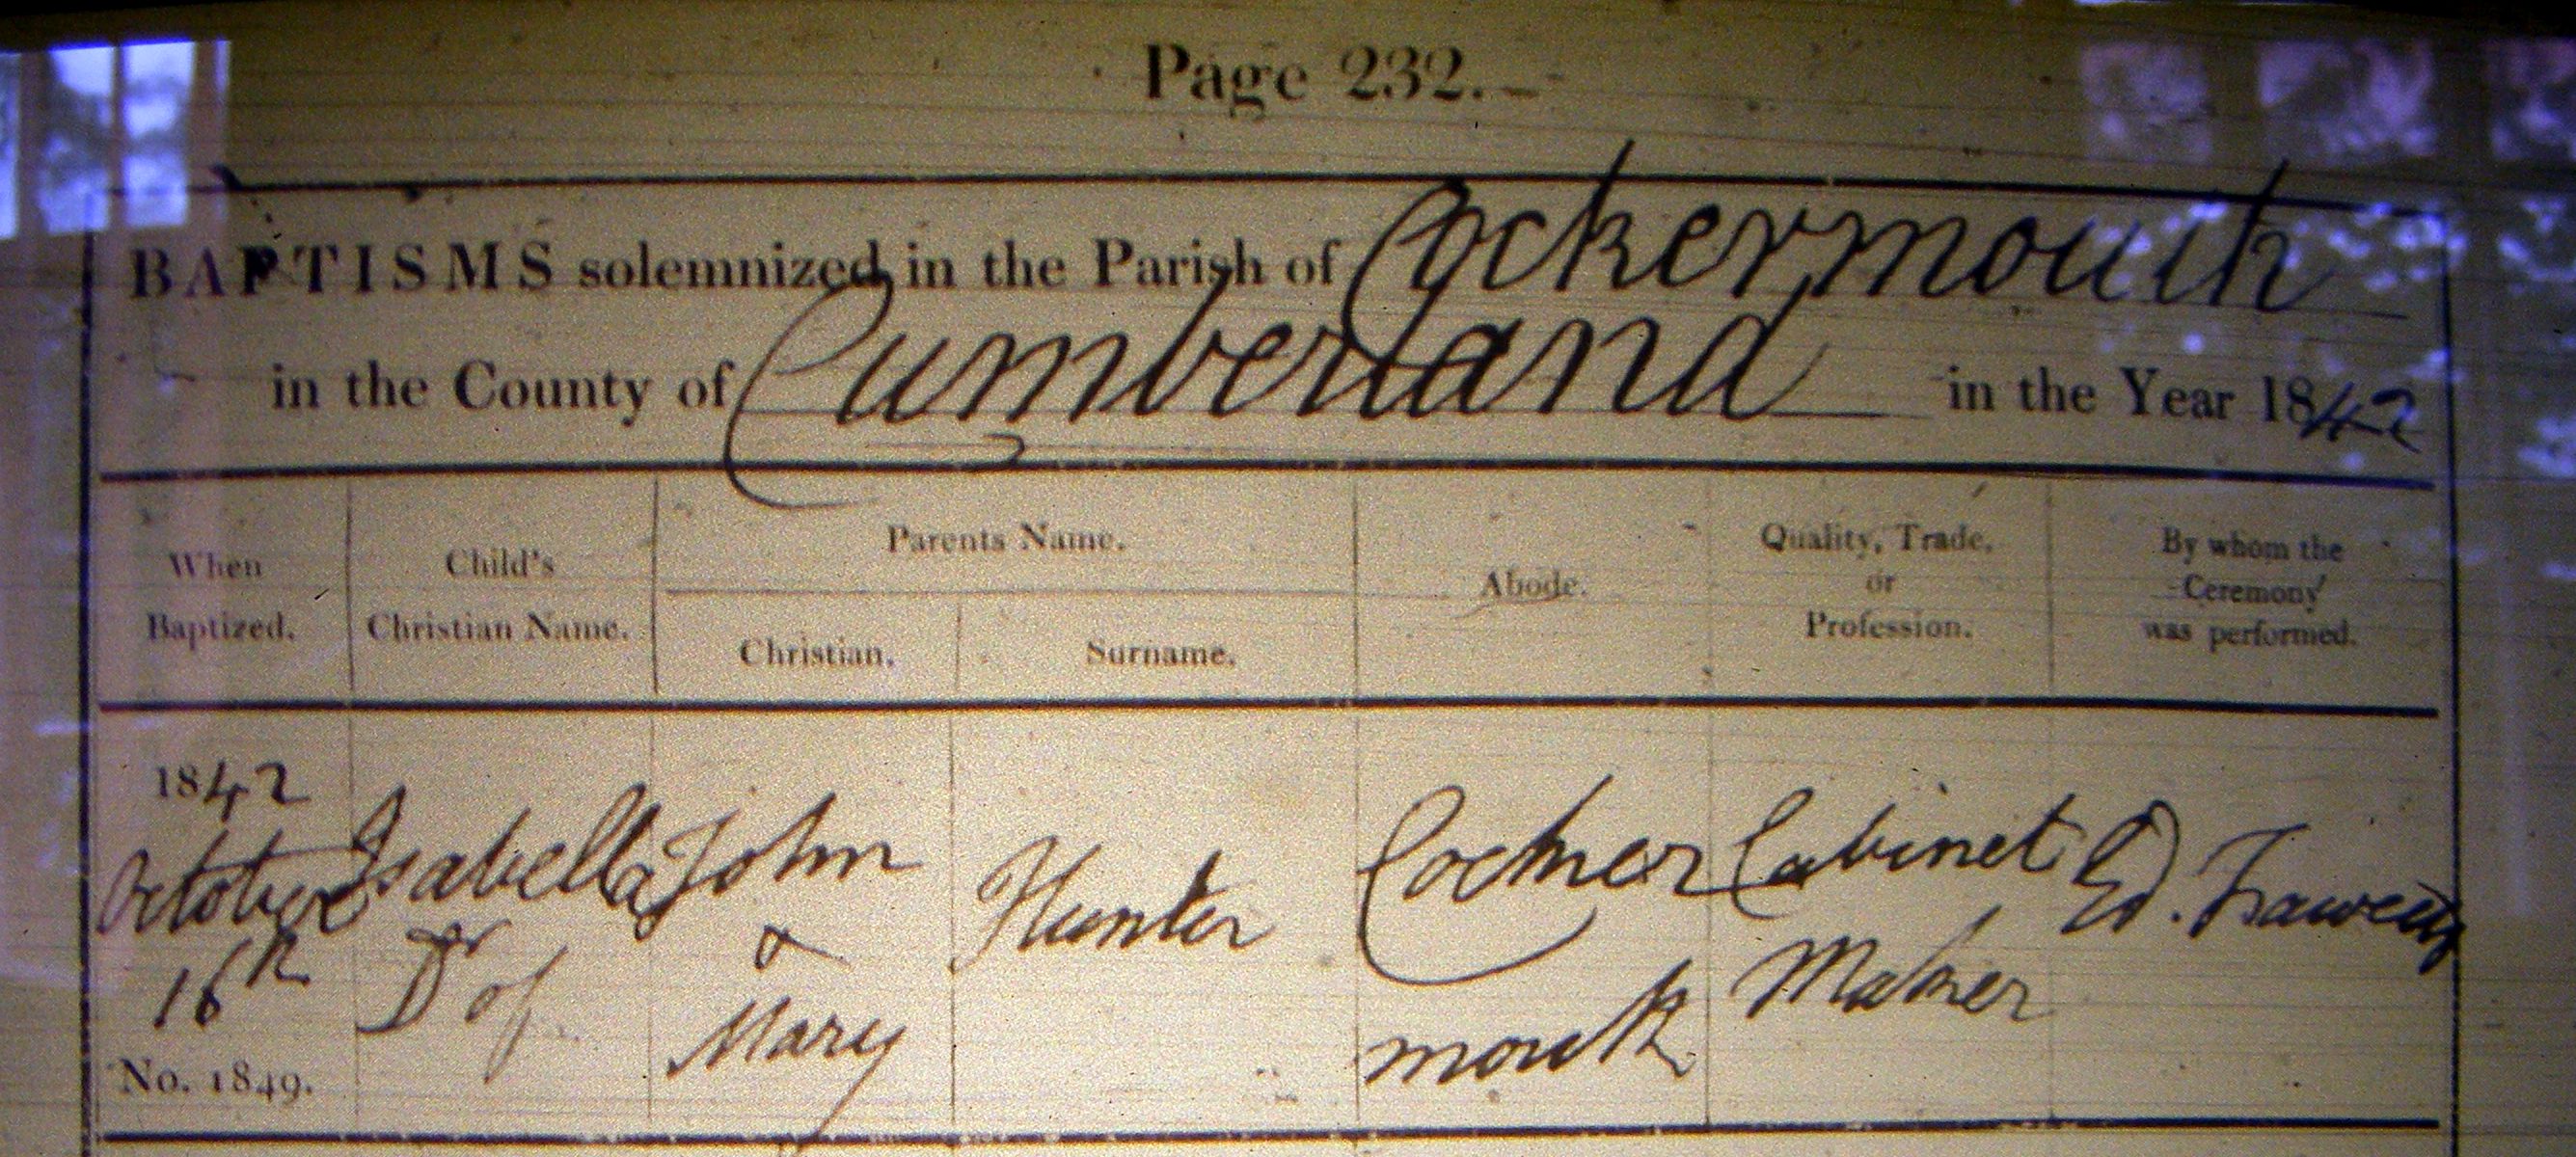 Page 232.
BAPTISMS solemnized in the Parish of Cockermouth
in the County of Cumberland in the Year 1842
When Baptized.
Child's Christian Name.
Parents Name.
Christian.
Surname.
Abode.
Quality, Trade, or Profession.
By whom the Ceremony was performed.
1842
October
16th
No. 1849.
Isabella
Dr of
John
&
Mary
Hunter
Cocker
mouth
Cabinet
Maker
Ed. Fawcett